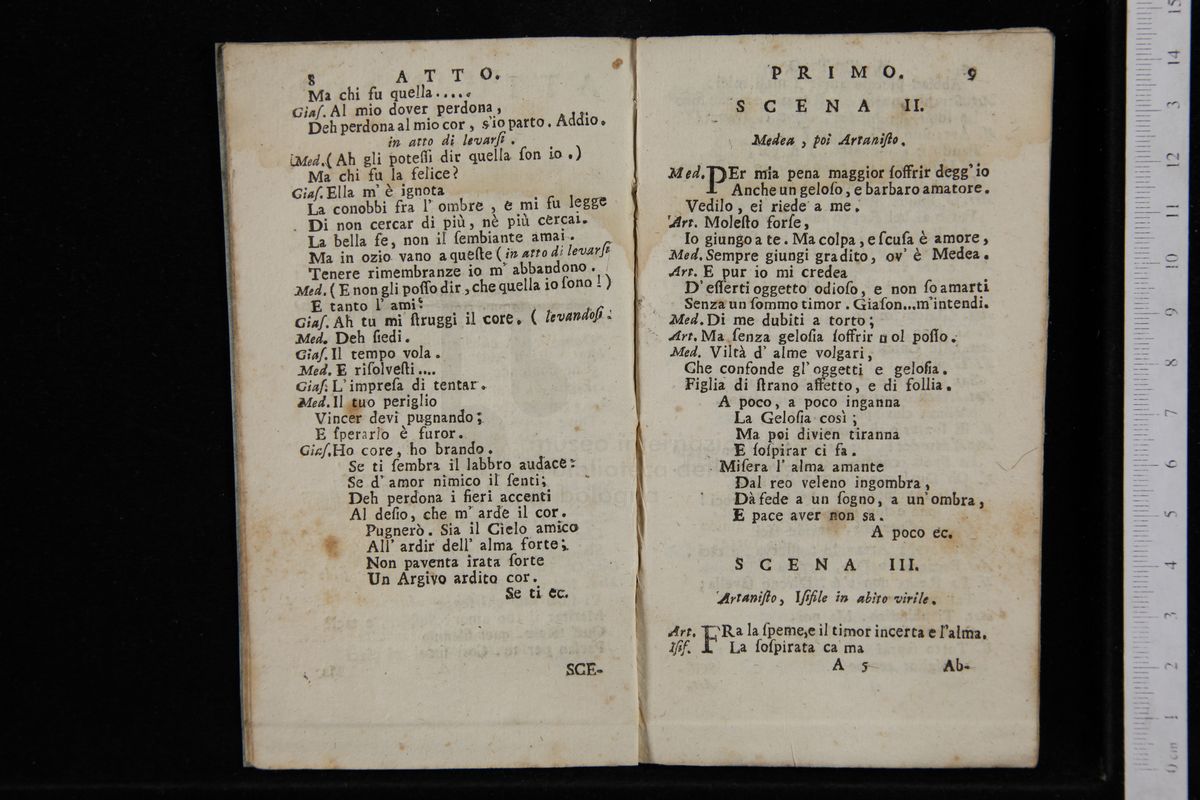 8 ATTO.
Ma chi fu quella.....
Giaſ. Al mio dover perdona,
Deh perdona al mio cor, s'io parto. Addio.
in atto di levarſi.
Med. (Ah gli poteſſi dir quella ſon io.)
Ma chi fu la felice?
Giaſ. Ella m' è ignota
La conobbi fra l' ombre, e mi fu legge
Di non cercar di più, nè più cercai.
La bella fe, non il ſembiante amai.
Ma in ozio vano a queſte (in atto di levarſi
Tenere rimembranze io m' abbandono.
Med. (E non gli poſſo dir, che quella io ſono!)
E tanto l' ami?
Giaſ. Ah tu mi ſtruggi il core. (levandoſi.
Med. Deh ſiedi.
Giaſ. Il tempo vola.
Med. E riſolveſti....
Giaſ: L' impreſa di tentar.
Med. Il tuo periglio
Vincer devi pugnando;
E ſperarlo è furor.
Giaſ. Ho core, ho brando.
Se ti ſembra il labbro audace:
Se d' amor nimico il ſenti;
Deh perdona i fieri accenti
Al deſio, che m' arde il cor.
Pugnerò. Sia il Cielo amico
All' ardir dell' alma forte;
Non paventa irata ſorte
Un Argivo ardito cor.
Se ti ec.
SCE-
PRIMO. 9
SCENA II.
Medea, poi Artaniſto.
Med. PEr mia pena maggior ſoffrir degg' io
Anche un geloſo, e barbaro amatore.
Vedilo, ei riede a me.
Art. Moleſto forſe,
Io giungo a te. Ma colpa, e ſcuſa è amore,
Med. Sempre giungi gradito, ov' è Medea.
Art. E pur io mi credea
D' eſſerti oggetto odioſo, e non ſo amarti
Senza un ſommo timor. Giaſon...m'intendi.
Med. Di me dubiti a torto;
Art. Ma ſenza geloſia ſoffrir nol poſſo.
Med. Viltà d' alme volgari,
Che confonde gl' oggetti e geloſia.
Figlia di ſtrano affetto, e di follia.
A poco, a poco inganna
La Geloſia così;
Ma poi divien tiranna
E ſoſpirar ci fa.
Miſera l' alma amante
Dal reo veleno ingombra,
Dà fede a un ſogno, a un' ombra,
E pace aver non sa.
A poco ec.
SCENA III.
Artaniſto, Iſiſile in abito virile.
Art. FRa la ſpeme, e il timor incerta e l'alma.
Iſiſ. La ſoſpirata ca ma
A 5 Ab-
museo internazi
biblioteca de
bologna
0 cm 1 2 3 4 5 6 7 8 9 10 11 12 13 14 15